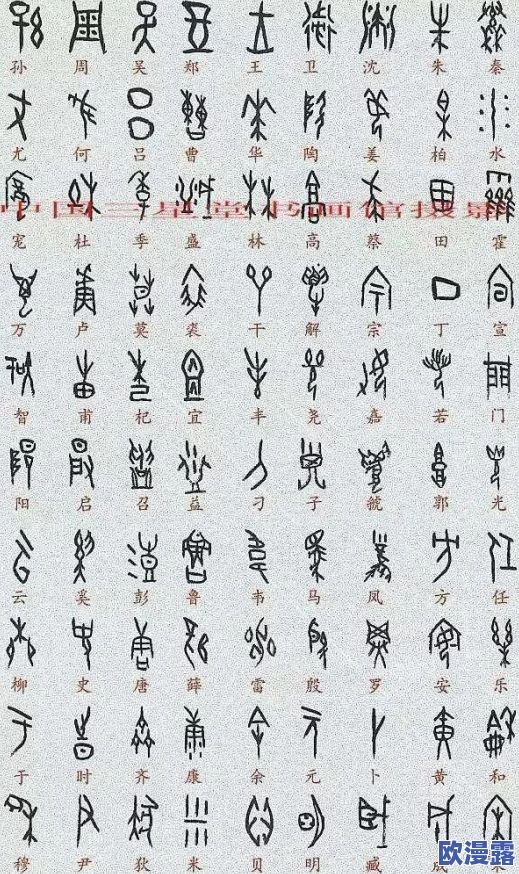 孙 周 吴 郑 王 卫 沈 朱 秦
尤 何 吕 曹 华 陶 姜 柏 水
中国三星堂书画馆摄影
宠 杜 季 盛 林 高 蔡 田 霍
万 卢 莫 裘 干 解 宗 丁 宣
智 甫 杞 宜 丰 尧 嘉 若 门
阳 启 召 益 刁 子 虢 郭 光
云 奚 彭 鲁 韦 马 凤 方 任
柳 史 唐 薛 雷 殷 罗 安 乐
于 时 齐 康 余 元 卜 黄 和
穆 尹 狄 米 贝 明 臧 成
欧漫露